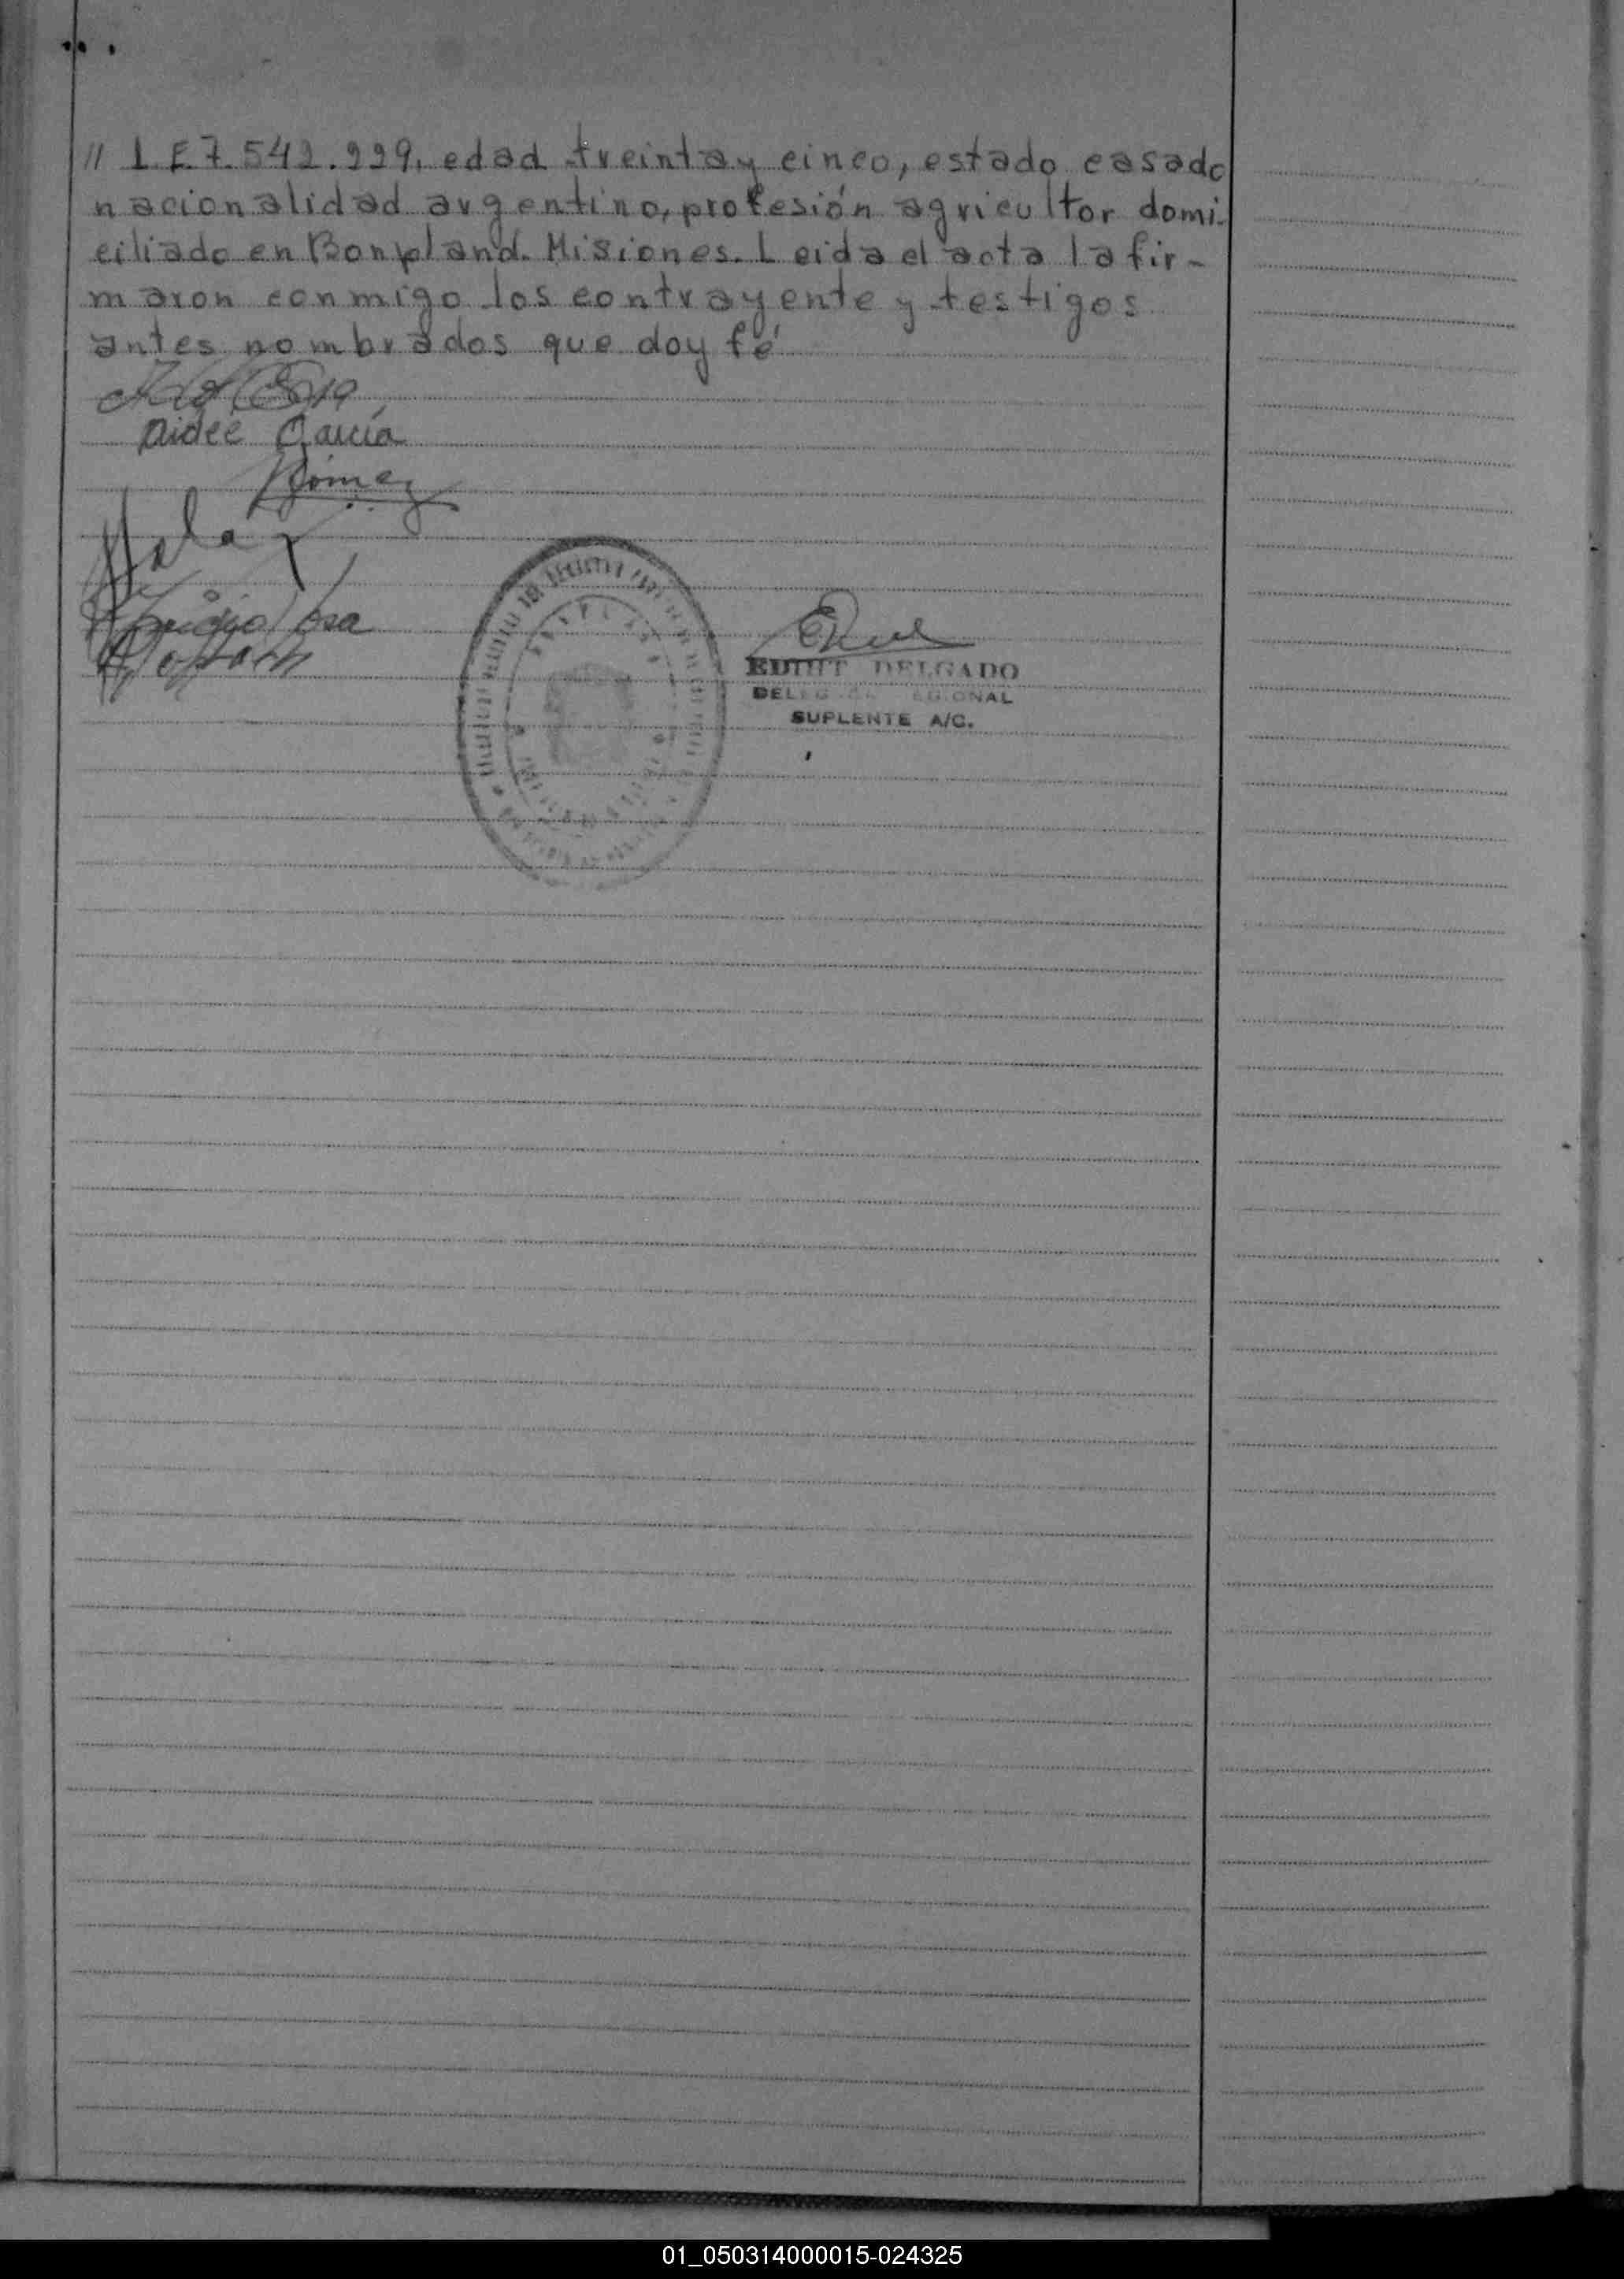 // L E 7.542.999, edad treinta y cinco, estado casado
nacionalidad argentino, profesión agricultor domi-
ciliado en Bonpland. Misiones. Leida el acta la fir-
maron conmigo los contrayente y testigos
antes nombrados que doy fé
Aidee García
Gómez
EDIHT DELGADO
SUPLENTE A/C.
01_050314000015-024325